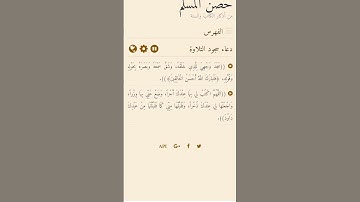 حصن المسلم
من أذكار الكتاب والسنة
الفهرس
دعاء سجود التلاوة
((سَجَدَ وَجْهِيَ لِلَّذِي خَلَقَهُ، وَشَقَّ سَمْعَهُ وَبَصَرَهُ بِحَوْلِهِ
وَقُوَّتِهِ، ﴿فَتَبَارَكَ اللَّهُ أَحْسَنُ الْخَالِقِينَ﴾)).
((اللَّهُمَّ اكْتُبْ لِي بِهَا عِنْدَكَ أَجْرًا، وَضَعْ عَنِّي بِهَا وِزْرًا،
وَاجْعَلْهَا لِي عِنْدَكَ ذُخْرًا، وَتَقَبَّلْهَا مِنِّي كَمَا تَقَبَّلْتَهَا مِنْ عَبْدِكَ
دَاوُدَ)).
API G+ f